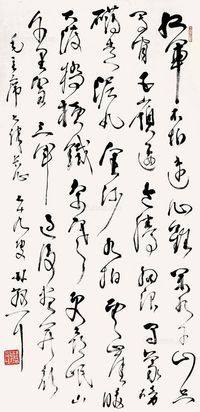 紅軍不怕遠征難萬水千山只
等閑五嶺逶迤騰細浪烏蒙磅
礴走泥丸金沙水拍雲崖暖
大渡橋橫鐵索寒更喜岷山
千里雪三軍過後盡開顏
毛主席七律長征 林散耳